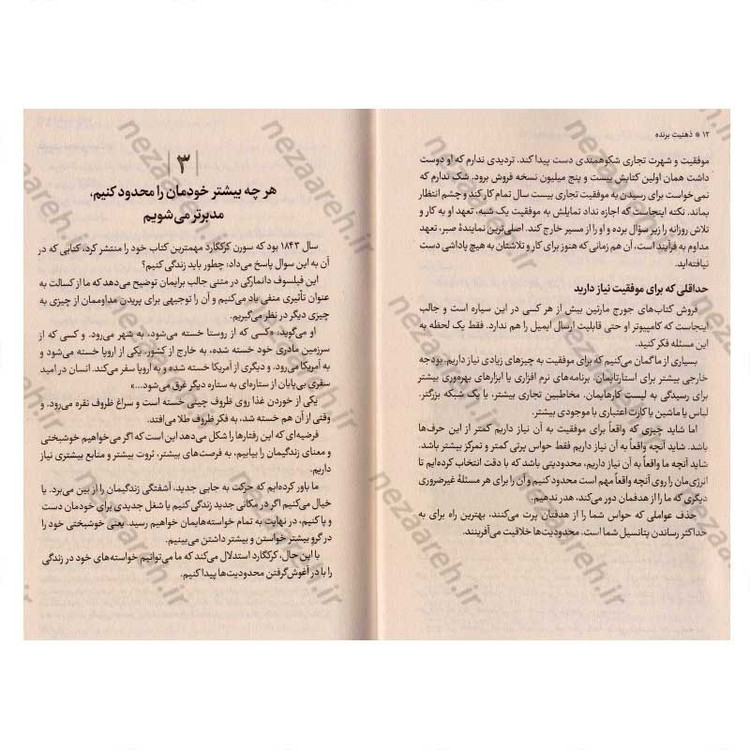 ۱۲ * ذهنیت برنده
موفقیت و شهرت تجاری شکوهمندی دست پیدا کند. تردیدی ندارم که او دوست
داشت همان اولین کتابش بیست و پنج میلیون نسخه فروش برود. شک ندارم که
نمی‌خواست برای رسیدن به موفقیت تجاری بیست سال تمام کار کند و چشم انتظار
بماند. نکته اینجاست که اجازه نداد تمایلش به موفقیت یک شبه، تعهد او به کار و
تلاش روزانه را زیر سؤال برده و او را از مسیر خارج کند. اصلی‌ترین نمایندهٔ صبر، تعهد
مداوم به فرآیند است، آن هم زمانی که هنوز برای کار و تلاشتان به هیچ پاداشی دست
نیافته‌اید.
حداقلی که برای موفقیت نیاز دارید
فروش کتاب‌های جورج مارتین بیش از هر کسی در این سیاره است و جالب
اینجاست که کامپیوتر او حتی قابلیت ارسال ایمیل را هم ندارد. فقط یک لحظه به
این مسئله فکر کنید.
بسیاری از ما گمان می‌کنیم که برای موفقیت به چیزهای زیادی نیاز داریم. بودجه
خارجی بیشتر برای استارتاپمان. برنامه‌های نرم افزاری یا ابزارهای بهره‌وری بیشتر
برای رسیدگی به لیست کارهایمان. مخاطبین تجاری بیشتر، یا یک شبکه بزرگتر.
لباس یا ماشین یا کارت اعتباری با موجودی بیشتر.
اما شاید چیزی که واقعاً برای موفقیت به آن نیاز داریم کمتر از این حرف‌ها
باشد. شاید آنچه واقعاً به آن نیاز داریم، حواس پرتی کمتر و تمرکز بیشتر باشد.
شاید آنچه ما واقعاً به آن نیاز داریم، محدودیتی باشد که با دقت انتخاب کرده‌ایم تا
انرژی‌مان را روی آنچه واقعاً مهم است محدود کنیم و آن را برای هر مسئلهٔ غیرضروری
دیگری که ما را از هدفمان دور می‌کند، هدر ندهیم.
حذف عواملی که حواس شما را از هدفتان پرت می‌کنند، بهترین راه برای به
حداکثر رساندن پتانسیل شما است. محدودیت‌ها خلاقیت می‌آفرینند.
۳
هر چه بیشتر خودمان را محدود کنیم،
مدبرتر می‌شویم
سال ۱۸۴۳ بود که سورن کرکگارد مهمترین کتاب خود را منتشر کرد، کتابی که در
آن به این سوال پاسخ می‌داد: چطور باید زندگی کنیم؟
این فیلسوف دانمارکی در متنی جالب برایمان توضیح می‌دهد که ما از کسالت به
عنوان تأثیری منفی یاد می‌کنیم و آن را توجیهی برای پریدن مداوممان از چیزی به
چیزی دیگر در نظر می‌گیریم.
او می‌گوید: «کسی که از روستا خسته می‌شود، به شهر می‌رود. و کسی که از
سرزمین مادری خود خسته شده، به خارج از کشور. یکی از اروپا خسته می‌شود و
به آمریکا می‌رود، و دیگری از آمریکا خسته شده و به اروپا سفر می‌کند. انسان در امید
سفری بی‌پایان از ستاره‌ای به ستاره دیگر غرق می‌شود...»
یکی از خوردن غذا روی ظروف چینی خسته است و سراغ ظروف نقره می‌رود. و
وقتی از آن هم خسته شد، به فکر ظروف طلا می‌افتد.
فرضیه‌ای که این رفتارها را شکل می‌دهد این است که اگر می‌خواهیم خوشبختی
و معنای زندگیمان را بیابیم، به فرصت‌های بیشتر، ثروت بیشتر و منابع بیشتری نیاز
داریم.
ما باور کرده‌ایم که حرکت به جایی جدید، آشفتگی زندگیمان را از بین می‌برد. یا
خیال می‌کنیم اگر در مکانی جدید زندگی کنیم یا شغل جدیدی برای خودمان دست
و پا کنیم، در نهایت به تمام خواسته‌هایمان خواهیم رسید. یعنی خوشبختی خود را
در گرو بیشتر خواستن و بیشتر داشتن می‌بینیم.
با این حال، کرکگارد استدلال می‌کند که ما می‌توانیم خواسته‌های خود در زندگی
را با در آغوش گرفتن محدودیت‌ها پیدا کنیم.
nezaareh.ir